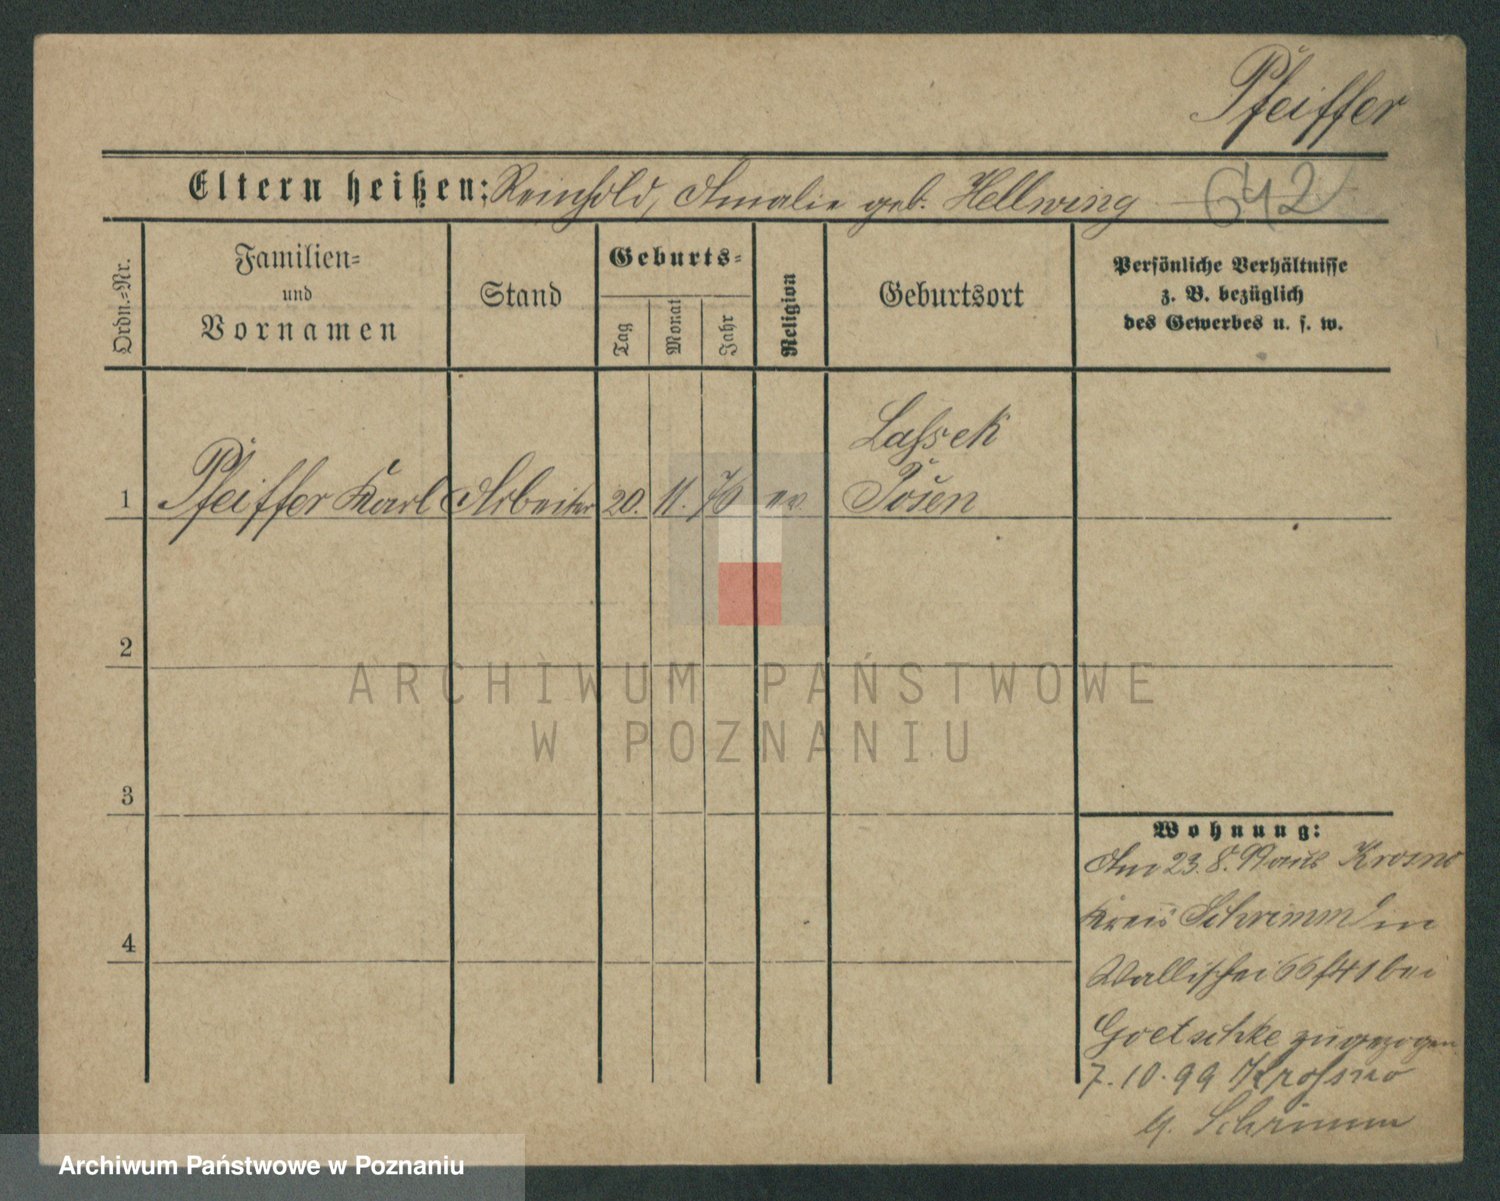 Pfeiffer
Eltern heißen: Reinhold, Amalie geb. Hellwing
642
Ordn.-Nr.
Familien-
und
Vornamen
Stand
Geburts-
Tag
Monat
Jahr
Religion
Geburtsort
Persönliche Verhältnisse
z. B. bezüglich
des Gewerbes u. s. w.
Lassek
1 Pfeiffer Karl Arbeiter 20. 11. 70 ev. Posen
2
ARCHIWUM PAŃSTWOWE
W POZNANIU
3
Wohnung:
Am 23.8.99 aus Krosno
4
Kreis Schrimm in
Wallischei 66/41 bei
Goetschke zugezogen
7.10.99 Krosno
Schrimm
Archiwum Państwowe w Poznaniu